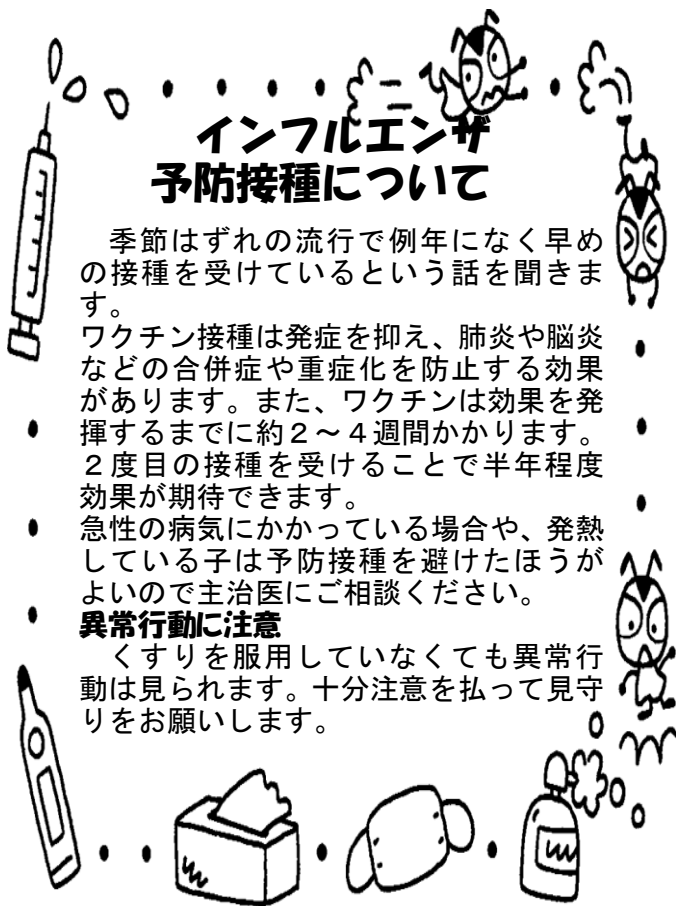 インフルエンザ
予防接種について
　季節はずれの流行で例年になく早め
の接種を受けているという話を聞きま
す。
ワクチン接種は発症を抑え、肺炎や脳炎
などの合併症や重症化を防止する効果
があります。また、ワクチンは効果を発
揮するまでに約２～４週間かかります。
２度目の接種を受けることで半年程度
効果が期待できます。
急性の病気にかかっている場合や、発熱
している子は予防接種を避けたほうが
よいので主治医にご相談ください。
異常行動に注意
　くすりを服用していなくても異常行
動は見られます。十分注意を払って見守
りをお願いします。